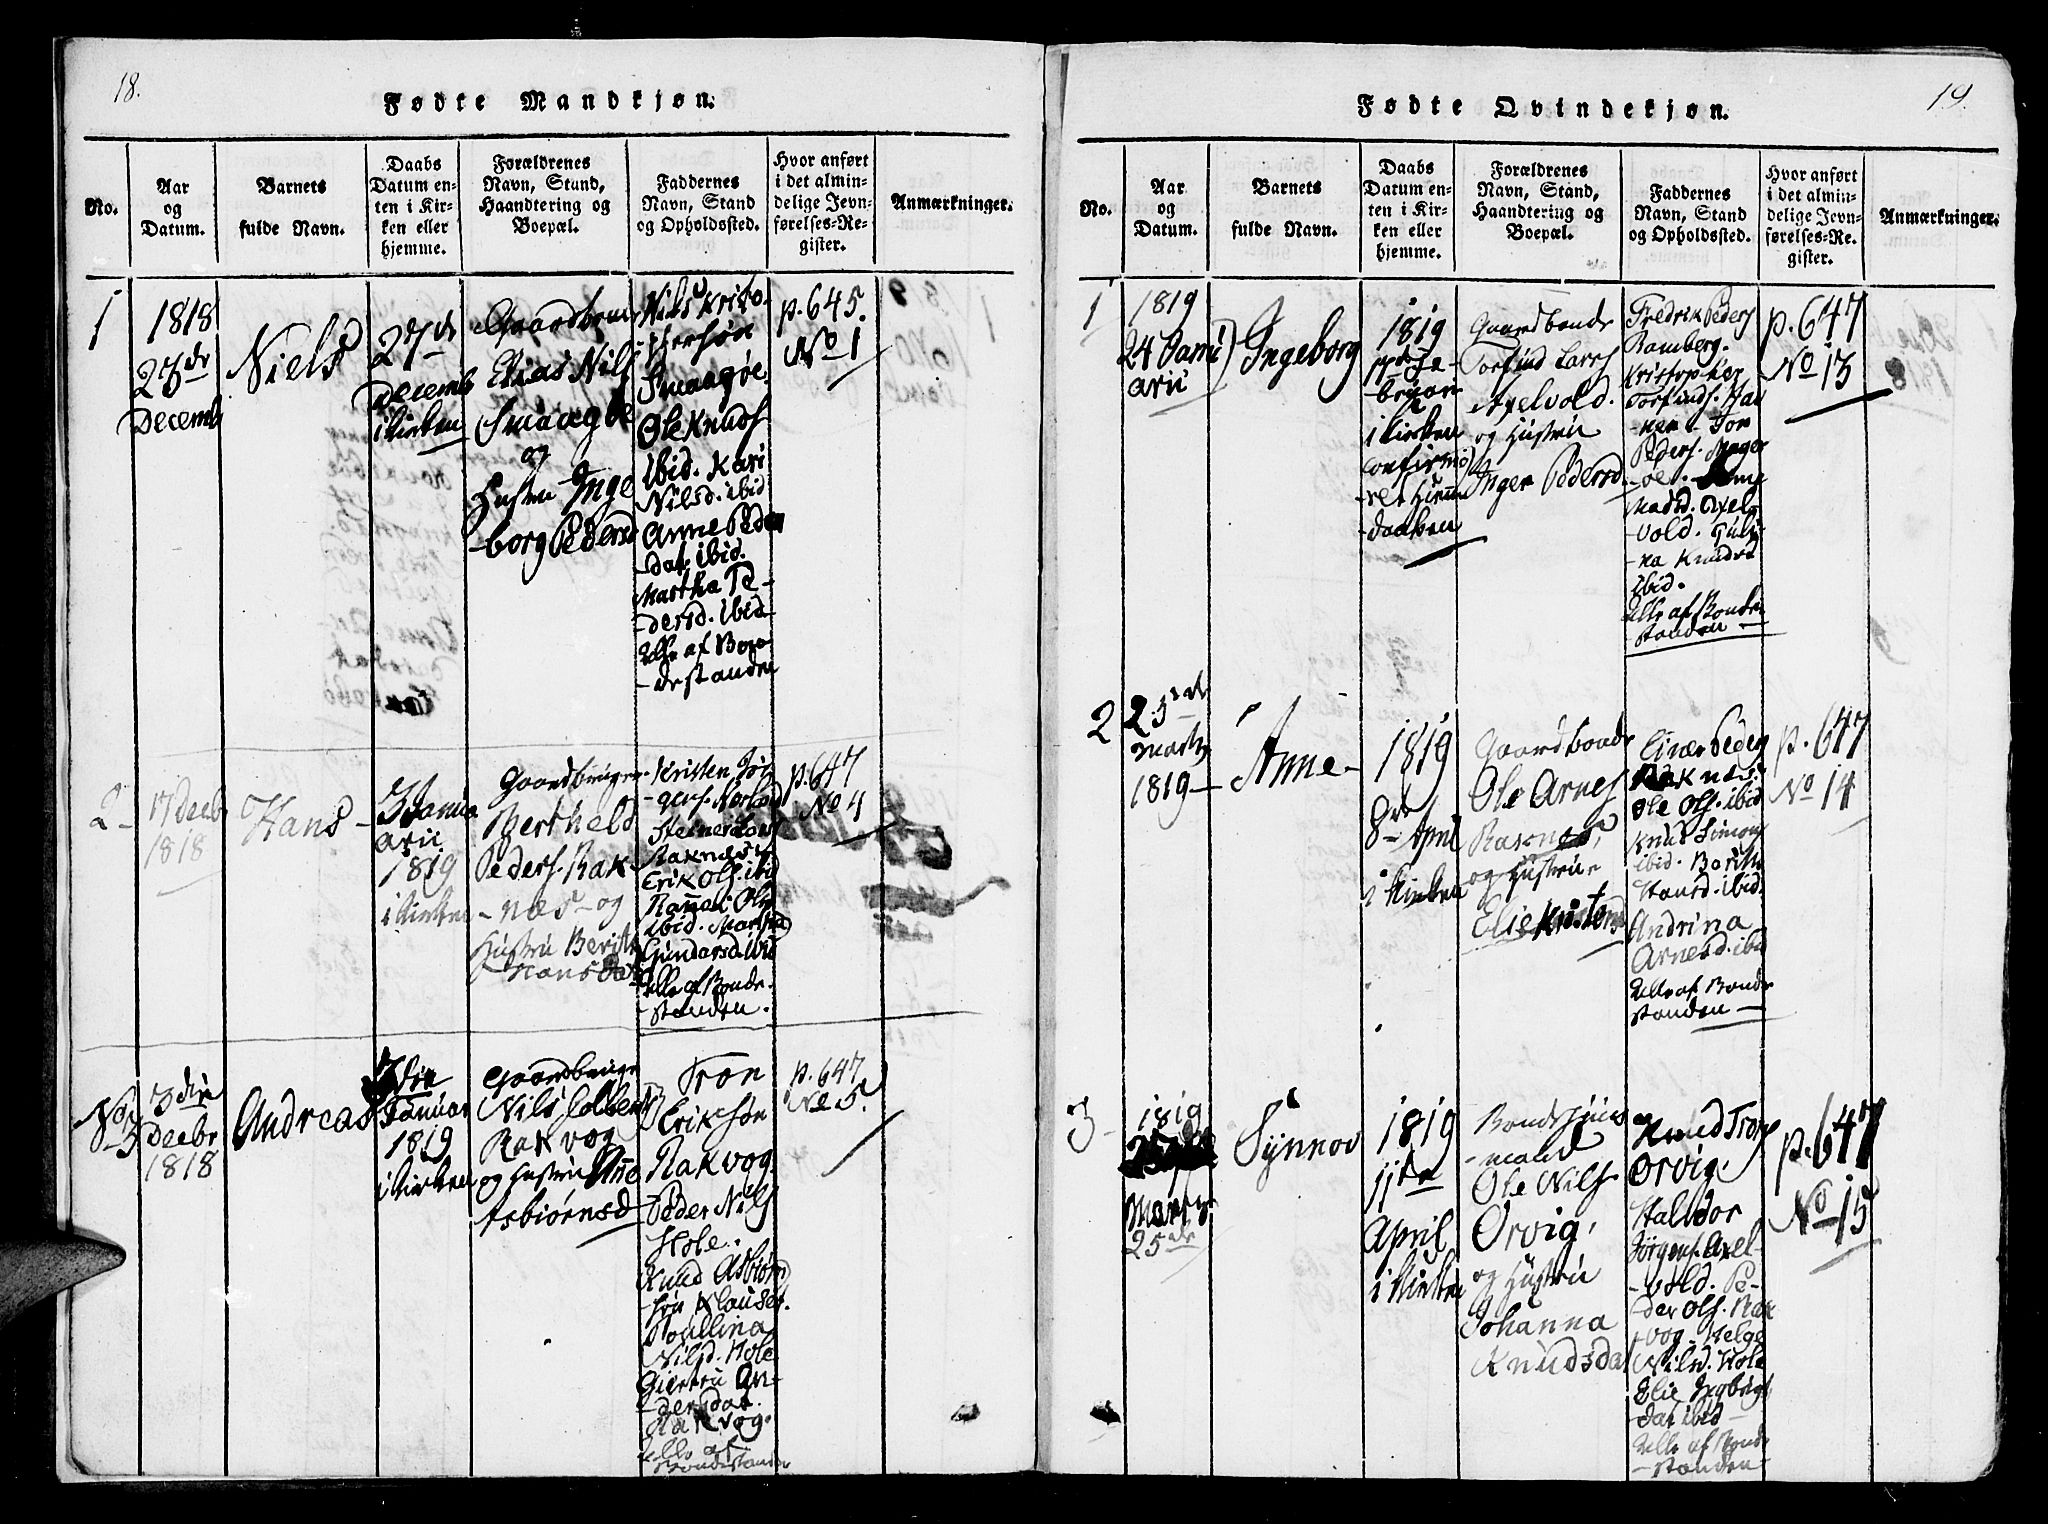 18.
Fødte Mandkjøn.
No.
Aar
og
Datum.
Barnets
fulde Navn.
Daabs
Datum en-
ten i Kir-
ken eller
hjemme.
Forældrenes
Navn, Stand,
Haandtering og
Boepæl.
Faddernes
Navn, Stand
og Opholdssted.
Hvor anført
i det almin-
delige Jevn-
førelses-Re-
gister.
Anmærkninger.
1
1818
Decemb
Niels
27de
Decemb
i Kirken
Elias Nils
Smaagøe
og
Hustru Inge
-borg Pedersd
Nils Kristo-
Smaagøe.
Ole Knuds
Ibid. Kari
Nilsd. ibid
Anne Peders
-dat. ibid.
Martha Pe-
dersd. Ibid
Alle af Bon-
-destanden
p. 645.
No 1
2-
17 Decbr
1818
Hans-
3 Janu
arii
1819
i Kirken
Gaardbruger
Berthel
Peders. Rak
-næs- og
Hustru Berith
Hansdat
Kristen Jør
-gens.
Raknæs
Erik Ols. ibid
Ibid.
Gundersd. Ibid
Alle af Bonde-
-standen.
p. 647
No 4
No 3
3die
Decbr
1818
Andreas
3die
Januar
1819
i Kirken
Gaardbruger
Nils
Rakvog
og Hustru Anne
Asbiørnsd
Tron
Erikssøn
Rakvog.
Peder Nils
Hole.
Knud Asbiørn
-søn
Nilsd. Hole
Giertru An-
dersdat.
Rakvog.
Alle af
Bondestanden
p. 647.
No 5.
19.
Fødte Qvindekjøn.
No.
Aar
og
Datum.
Barnets
fulde Navn.
Daabs
Datum en-
ten i Kir-
ken eller
hjemme.
Forældrenes
Navn, Stand,
Haandtering og
Boepæl.
Faddernes
Navn, Stand
og Opholdssted.
Hvor anført
i det almin-
delige Jevn-
førelses-Re-
gister.
Anmærkninger.
1
1819
24 Janu
arii
Ingeborg
1819
i Kirken
-daaben
Gaardbonde
Torfind Lars
Axelvold.
og Hustru
Inger Pedersd.
Fredrik Peders
Kristopher
Torfinds.
Peders.
Madsd. Axel-
vold.
-na Knudsd
Ibid.
Alle af Bonde-
standen
p. 647
No 13
2
25de
Marty
1819-
Anne-
1819
8de April
i Kirken
Gaardbonde
Ole Arnes
Raknæs,
og Hustrue
Elie Kristensd
Einer Peders
Raknæs.
Ole Ols. ibid
Knud Simons
ibid. Berith
Hansd. ibid.
Andrina
Arnesd. ibid
Alle af Bonde
standen
p. 647
No 14
3-
1819
Marty.
25de
Synnov
1819
11te
April
i Kirken
-mand
Ole Nils.
Orvig,
og Hustru
Johanna
Knudsdat
Knud Tron
Orvig.
Haldor
Jørgens. Axel-
-vold. Pe-
der Ols. Rak
-vog. Helge
Nilsd. Hole
Elie Ingbrigt
-dat ibid
Alle af Bonde
-standen
p. 647
No 15